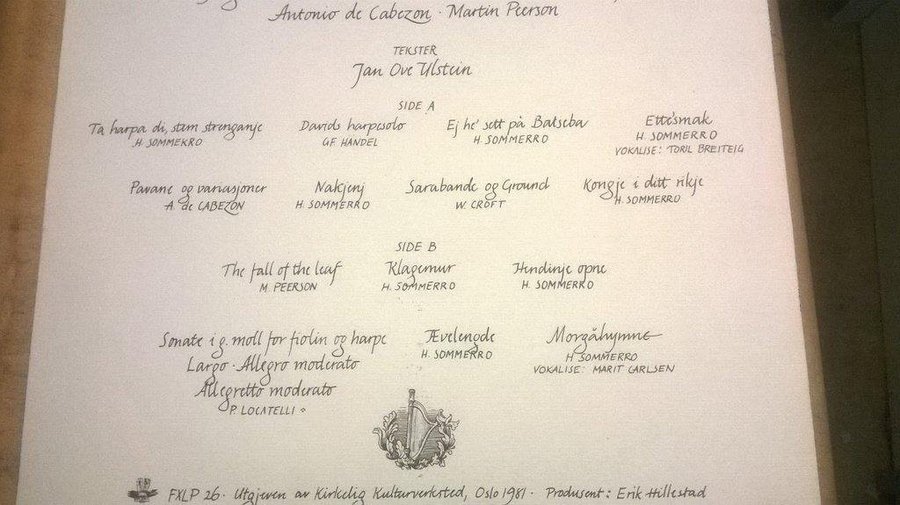 Antonio de Cabezon · Martin Peerson
TEKSTER
Jan Ove Ulstein
SIDE A
Ta harpa di, stem strenganje
H. SOMMERRO
Davids harpesolo
G.F. HÄNDEL
Ej he' sett på Batseba
H. SOMMERRO
Ettesmak
H. SOMMERRO
VOKALISE: TORIL BREITEIG
Pavane og variasjoner
A. de CABEZON
Nakjenj
H. SOMMERRO
Sarabande og Ground
W. CROFT
Kongje i ditt rikje
H. SOMMERRO
SIDE B
The fall of the leaf
M. PEERSON
Klagemur
H. SOMMERRO
Hendinje opne
H. SOMMERRO
Sonate i g. moll for fiolin og harpe
Largo · Allegro moderato
Allegretto moderato
P. LOCATELLI
Ævelengde
H. SOMMERRO
Morgåhymne
H SOMMERRO
VOKALISE: MARIT CARLSEN
FXLP 26 · Utgjeven av Kirkelig Kulturverksted, Oslo 1981 · Produsent: Erik Hillestad